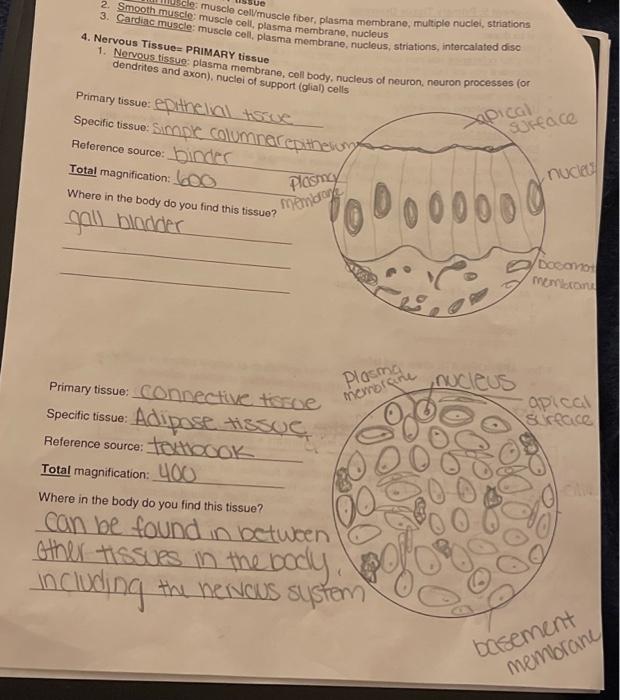 muscle: muscle cell/muscle fiber, plasma membrane, multiple nuclei, striations
2. Smooth muscle: muscle cell, plasma membrane, nucleus
3. Cardiac muscle: muscle cell, plasma membrane, nucleus, striations, intercalated disc
4. Nervous Tissue= PRIMARY tissue
1. Nervous tissue: plasma membrane, cell body, nucleus of neuron, neuron processes (or
dendrites and axon), nuclei of support (glial) cells
Primary tissue: epithelial tissue
apical
surface
Specific tissue: Simple columnar epithelium
Reference source: binder
nucleus
Total magnification: 600
plasma
membrane
Where in the body do you find this tissue?
gall bladder
basement
membrane
Primary tissue: connective tissue
plasma
membrane
nucleus
apical
surface
Specific tissue: Adipose tissue
Reference source: textbook
Total magnification: 400
Where in the body do you find this tissue?
can be found in between
other tissues in the body,
including the nervous system
basement
membrane